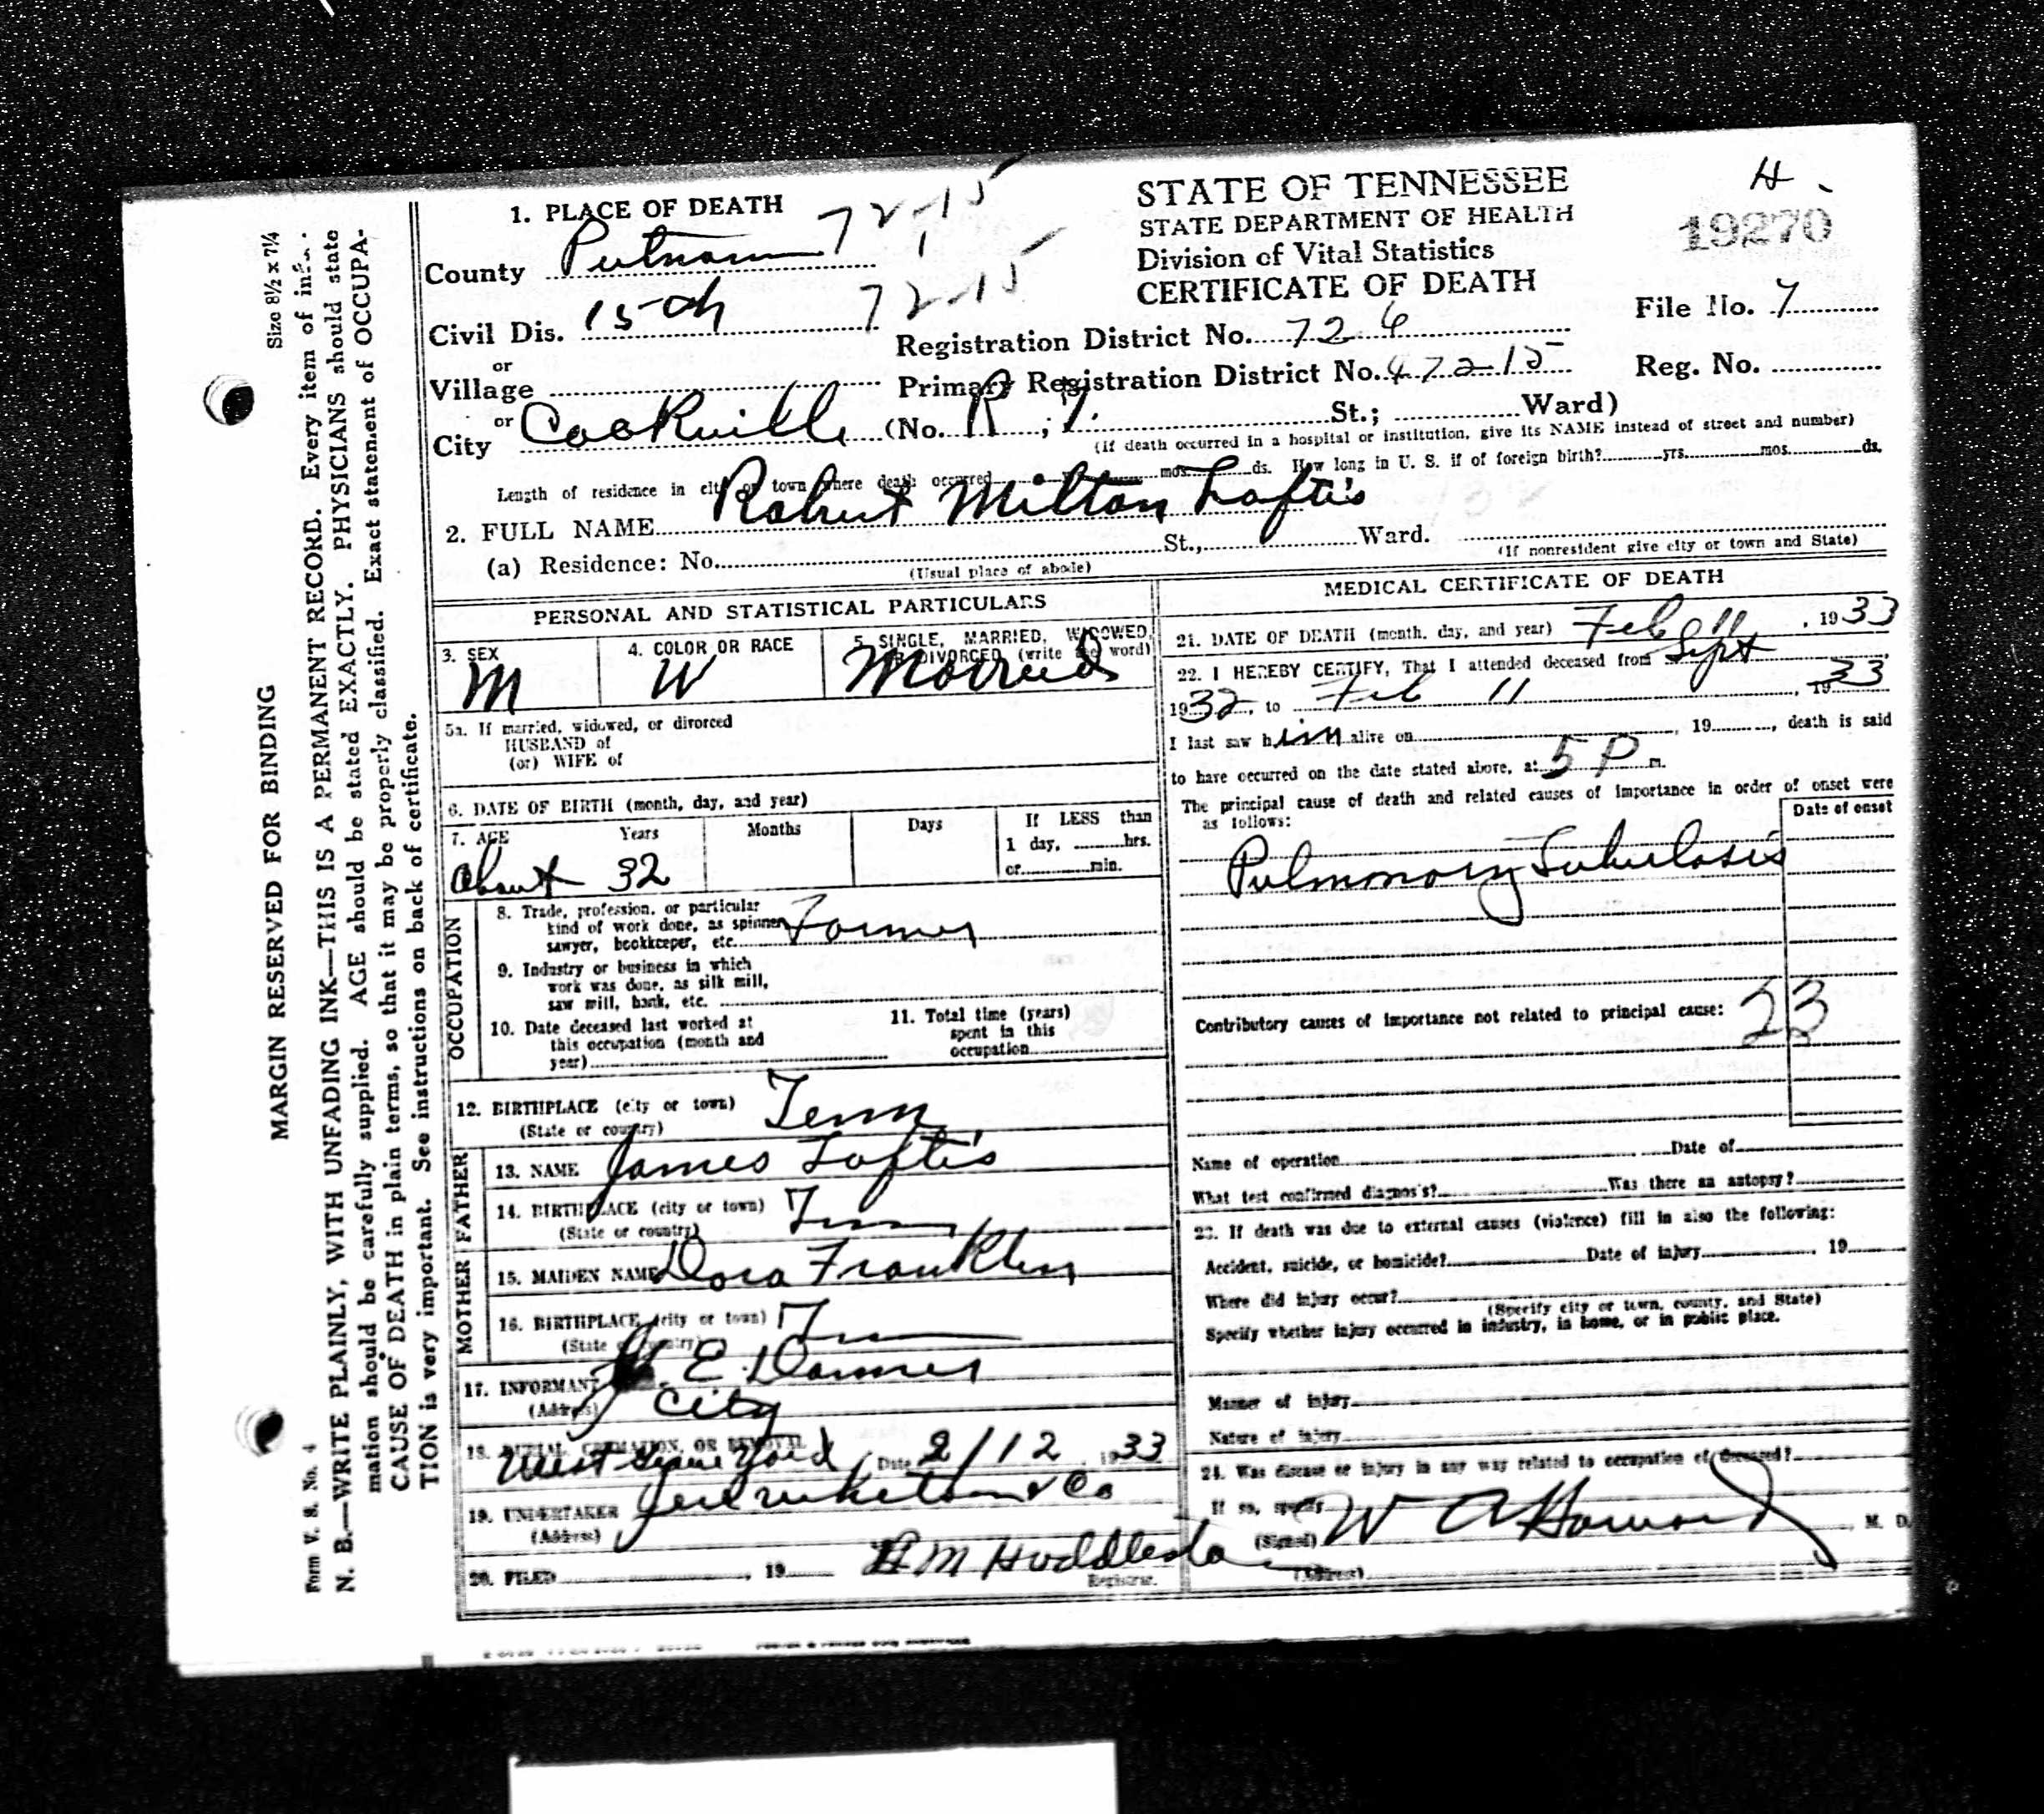 Size 8½ x 7¼
MARGIN RESERVED FOR BINDING
N. B.—WRITE PLAINLY, WITH UNFADING INK—THIS IS A PERMANENT RECORD. Every item of
mation should be carefully supplied. AGE should be stated EXACTLY. PHYSICIANS should state
CAUSE OF DEATH in plain terms, so that it may be properly classified. Exact statement of OCCUPA-
TION is very important. See instructions on back of certificate.
Form V. S. No. 4
1. PLACE OF DEATH 72-15
County Putnam
Civil Dis. 15th 72-15
or
Village
or
City Cookville (No. R, 7. St.; Ward)
STATE OF TENNESSEE
STATE DEPARTMENT OF HEALTH
Division of Vital Statistics
CERTIFICATE OF DEATH
H
19270
Registration District No. 726 File No. 7
Primary Registration District No. 47215 Reg. No.
(If death occurred in a hospital or institution, give its NAME instead of street and number)
Length of residence in city or town where death occurred mos. ds. How long in U. S. if of foreign birth? yrs. mos. ds.
2. FULL NAME Robert Milton Loftis
(a) Residence: No. St., Ward.
(Usual place of abode) (If nonresident give city or town and State)
PERSONAL AND STATISTICAL PARTICULARS
3. SEX M
4. COLOR OR RACE W
5. SINGLE, MARRIED, WIDOWED, OR DIVORCED (write the word) Married
5a. If married, widowed, or divorced
HUSBAND of
(or) WIFE of
6. DATE OF BIRTH (month, day, and year)
7. AGE Years Months Days If LESS than
1 day, hrs.
or min.
About 32
OCCUPATION
8. Trade, profession, or particular
kind of work done, as spinner, Farmer
sawyer, bookkeeper, etc.
9. Industry or business in which
work was done, as silk mill,
saw mill, bank, etc.
10. Date deceased last worked at
this occupation (month and
year)
11. Total time (years)
spent in this
occupation
12. BIRTHPLACE (city or town) Tenn
(State or country)
FATHER
13. NAME James Loftis
14. BIRTHPLACE (city or town) Tenn
(State or country)
MOTHER
15. MAIDEN NAME Dora Franklin
16. BIRTHPLACE (city or town) Tenn
(State or country)
17. INFORMANT E
(Address) City
18. BURIAL, CREMATION, OR REMOVAL
West Grave Yard Date 2/12 1933
19. UNDERTAKER & Co
(Address)
20. FILED , 19 Huddleston
Registrar.
MEDICAL CERTIFICATE OF DEATH
21. DATE OF DEATH (month, day, and year) Feb 11, 1933
22. I HEREBY CERTIFY, That I attended deceased from Sept
1932, to Feb 11, 1933
I last saw him alive on , 19 , death is said
to have occurred on the date stated above, at 5 P m.
The principal cause of death and related causes of importance in order of onset were
as follows:
Date of onset
Pulmonary Tuberlosis
Contributory causes of importance not related to principal cause: 23
Name of operation Date of
What test confirmed diagnosis? Was there an autopsy?
23. If death was due to external causes (violence) fill in also the following:
Accident, suicide, or homicide? Date of injury , 19
Where did injury occur?
(Specify city or town, county, and State)
Specify whether injury occurred in industry, in home, or in public place.
Manner of injury
Nature of injury
24. Was disease or injury in any way related to occupation of deceased?
If so, specify
(Signed) W A Howard, M. D.
(Address)